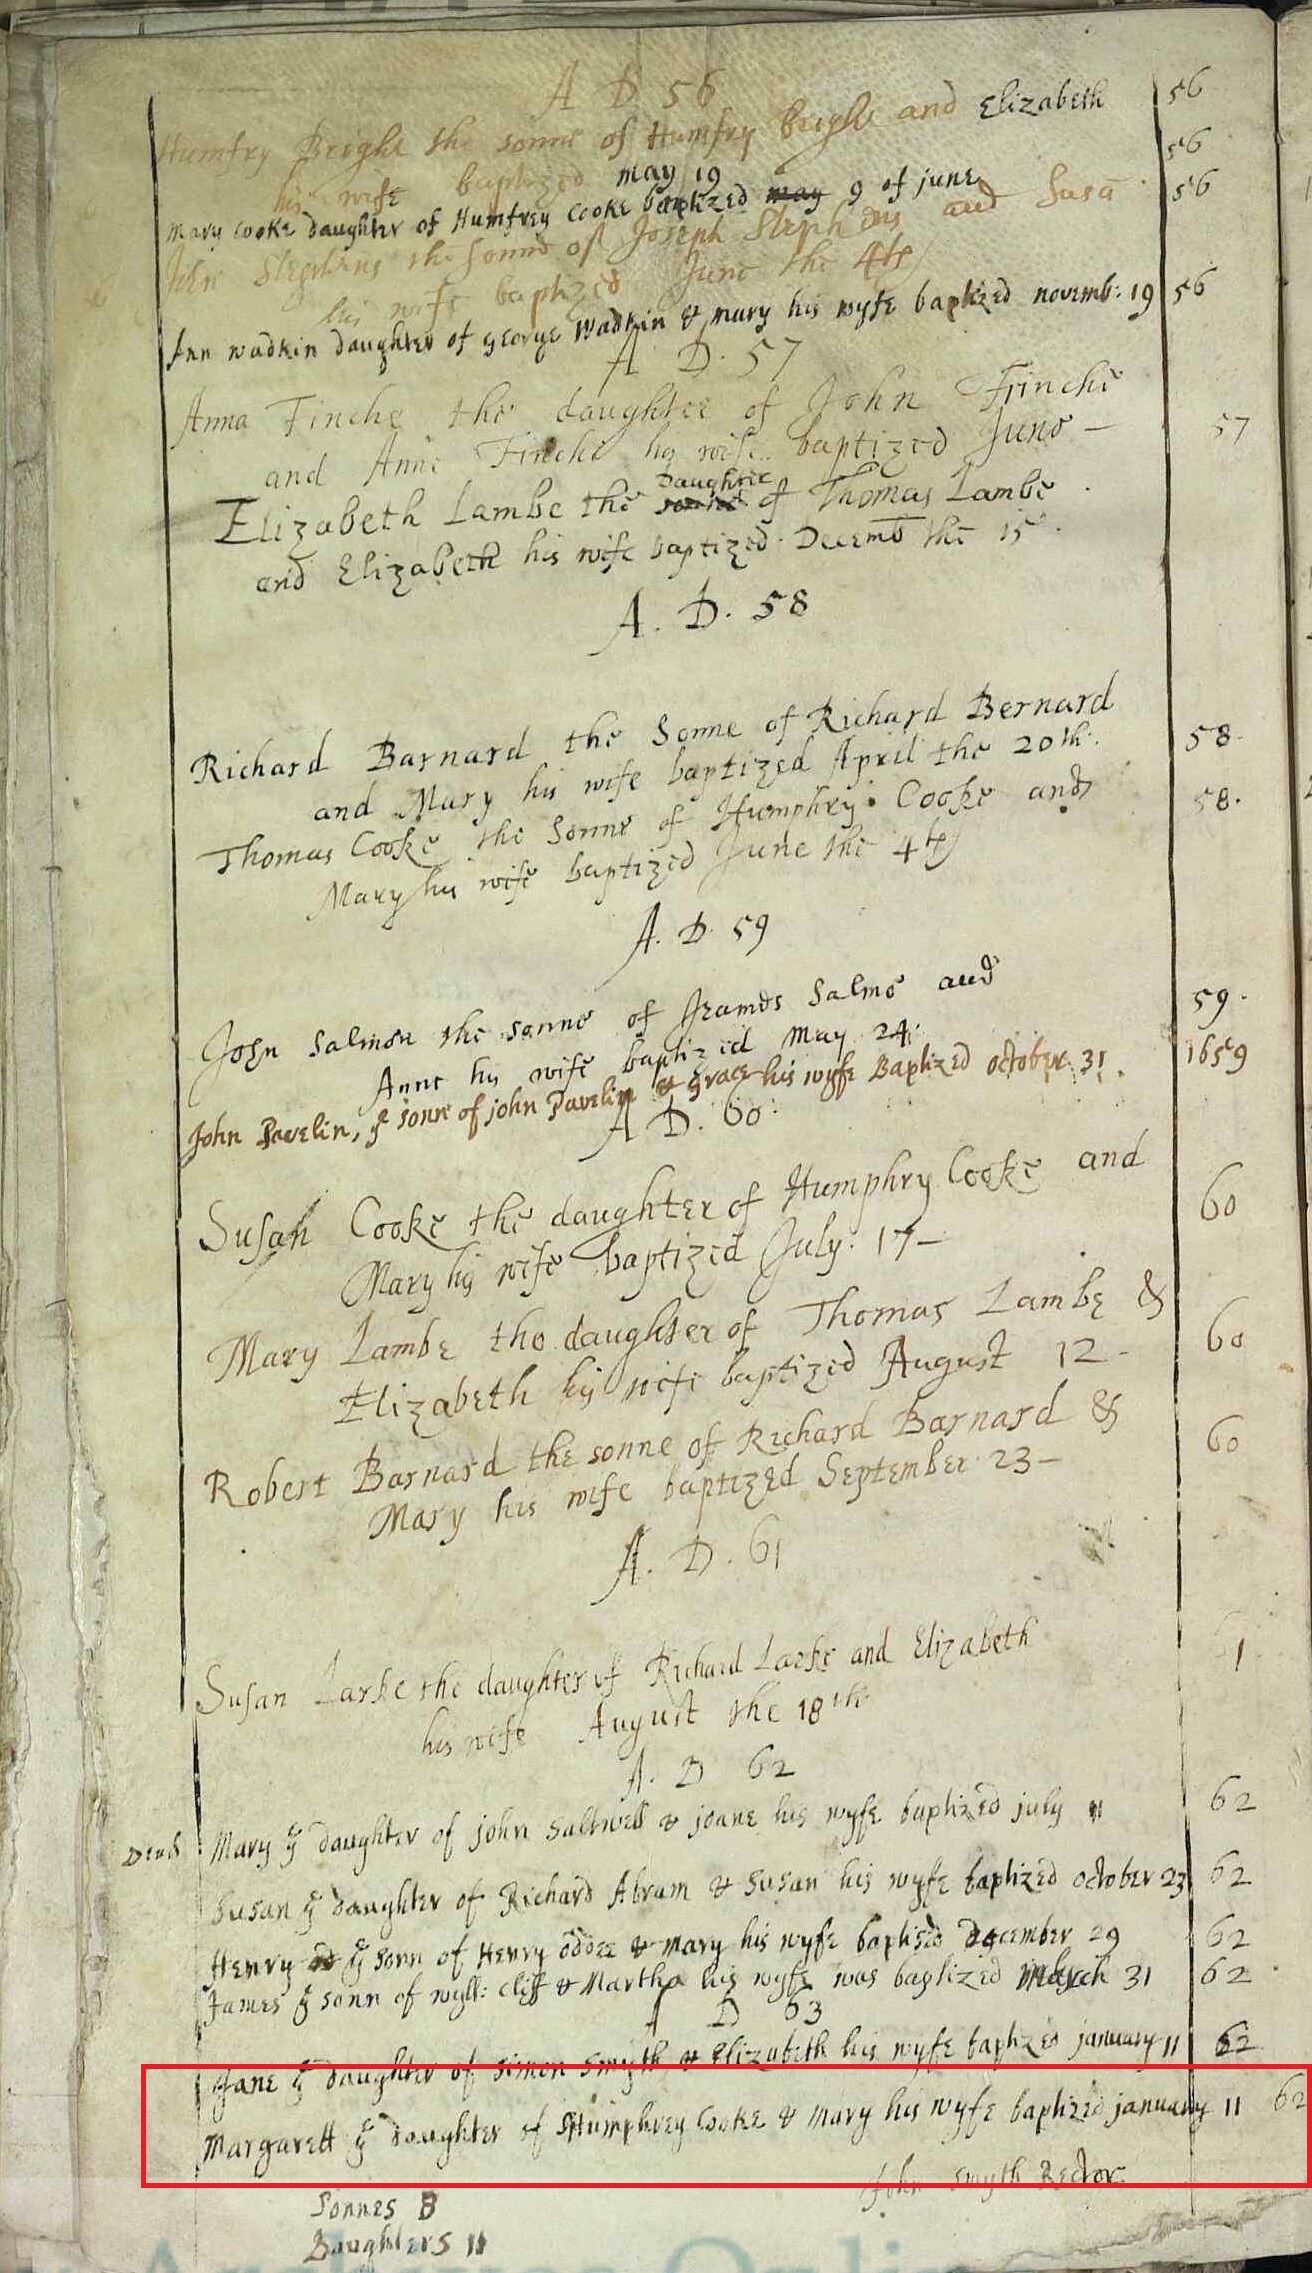 A D 56
Humfry Bright the sonne of Humfry bright and Elizabeth 56
his wife baptized may 19 56
Mary Cooke daughter of Humfrey Cooke baptized may 9 of june 56
John Stephens the sonne of Joseph Stephens and Susā
his wife baptized June the 4th
Ann wadkin daughter of George Wadkin & mary his wyfe baptized novemb: 19 56
A D. 57
Anna Finche the daughter of John Ffinche
and Anne Finche his wife baptized June – 57
Daughter
Elizabeth Lambe the sonne of Thomas Lambe
and Elizabeth his wife baptized Decemb the 15
A. D. 58
Richard Barnard the Sonne of Richard Bernard
and Mary his wife baptized April the 20th. 58.
Thomas Cooke the Sonne of Humphry Cooke and 58.
Mary his wife baptized June the 4th
A. D 59
John Salmon the sonne of Salmo and 59.
Anne his wife baptized May 24:
John Pavelin, ye sonne of john Pavelin & Grace his wyfe Baptized october 31. 1659
A D. 60:
Susan Cooke the daughter of Humphry Cooke and 60
Mary his wife baptized July. 17–
Mary Lambe the daughter of Thomas Lambe & 60
Elizabeth his wife baptized August 12–
Robert Barnard the sonne of Richard Barnard & 60
Mary his wife baptized September 23–
A. D. 61
Susan Larke the daughter of Richard Larke and Elizabeth 61
his wife August the 18th
A. D 62
Mary ye daughter of john Saltwell & joane his wyfe baptized july 11 62
Susan ye daughter of Richard Abram & Susan his wyfe baptized october 23 62
Henry ye sonn of Henry oddee & mary his wyfe baptised December 29 62
James ye sonn of wyll: Cliff & Martha his wyfe was baptized March 31 62
A D 63
Jane ye daughter of Simon Smyth & Elizabeth his wyfe baptized january 11 62
Margarett ye daughter of Humphrey Cooke & Mary his wyfe baptized january 11 62
John Smyth Rector
Sonnes 8
Daughters 11